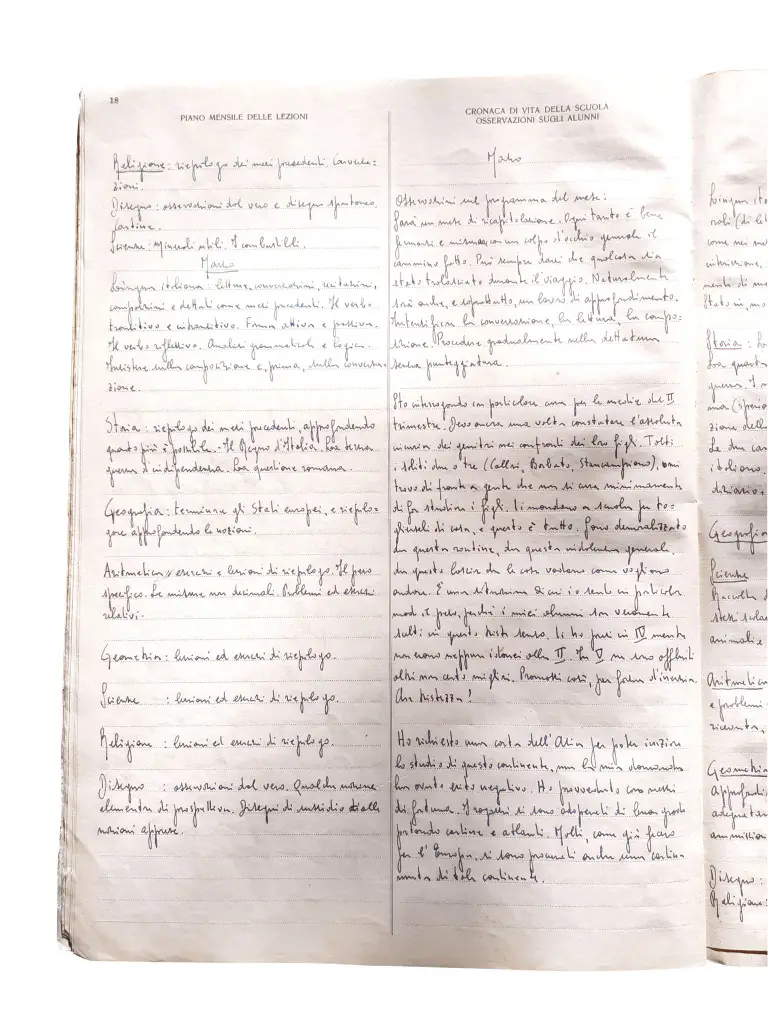 18
PIANO MENSILE DELLE LEZIONI
Religione: riepilogo dei mesi precedenti. Conversa=
zioni.
Disegno: osservazioni dal vero e disegno spontaneo.
Cartine.
Scienze: Minerali utili. I combustibili.
Marzo
Lingua italiana: lettura, conversazioni, recitazioni,
composizioni e dettati come mesi precedenti. Il verbo
transitivo e intransitivo. Forma attiva e passiva.
Il verbo riflessivo. Analisi grammaticale e logica.
Insistere sulla composizione e, prima, sulla conversa=
zione.
Storia: riepilogo dei mesi precedenti, approfondendo
quanto più è possibile. Il Regno d'Italia. La terza
guerra d'indipendenza. La questione romana.
Geografia: terminare gli Stati europei, e riepilo=
gare approfondendo le nozioni.
Aritmetica: esercizi e lezioni di riepilogo. Il peso
specifico. Le misure non decimali. Problemi ed esercizi
relativi.
Geometria: lezioni ed esercizi di riepilogo.
Scienze : lezioni ed esercizi di riepilogo.
Religione : lezioni ed esercizi di riepilogo.
Disegno : osservazioni dal vero. Qualche nozione
elementare di prospettiva. Disegni di sussidio alle
nozioni apprese.
CRONACA DI VITA DELLA SCUOLA
OSSERVAZIONI SUGLI ALUNNI
Marzo
Osservazioni sul programma del mese:
Sarà un mese di ricapitolazione. Ogni tanto è bene
fermarsi e misurare con un colpo d'occhio generale il
cammino fatto. Può sempre darsi che qualcosa sia
stato tralasciato durante il viaggio. Naturalmente
sarà anche, e soprattutto, un lavoro di approfondimento.
Intensificare la conversazione, la lettura, la compo=
sizione. Procedere gradualmente nella dettatura
senza punteggiatura.
Sto interrogando con particolare cura per le medie del II
trimestre. Devo ancora una volta constatare l'assoluta
incuria dei genitori nei confronti dei loro figli. Tolti
i soliti due o tre (Collari, Barbato, Stancampiano), mi
trovo di fronte a gente che non si cura minimamente
di far studiare i figli. Li mandano a scuola per to=
glierseli di casa, e questo è tutto. Sono demoralizzato
da questa routine, da questa indolenza generale,
da questo lascia che le cose vadano come vogliono
andare. È una situazione di cui io sento in particolar
modo il peso, perché i miei alunni son veramente
scelti in questo triste senso. Li ho presi in IV mentre
non erano neppure idonei alla II. In V me sono affibbiati
altri non certo migliori. Promossi così, per forza d'inerzia.
Che tristezza!
Ho richiesto una carta dell'Asia per poter iniziare
lo studio di questo continente, ma la mia domanda
ha avuto esito negativo. Ho provveduto con mezzi
di fortuna. I ragazzi si sono adoperati di buon grado
portando cartine e atlanti. Molti, come già fecero
per l'Europa, si sono procurati anche una cartina
muta di tale continente.
Lingua ita
Storia: La
La quarta
guerra. I m
zione delle
Le due
italiano.
Geografia
Scienze
Raccolta d
animali e
Aritmetica
e problemi
Geometria
Approfondi
adeguatam
Disegno:
Religione: